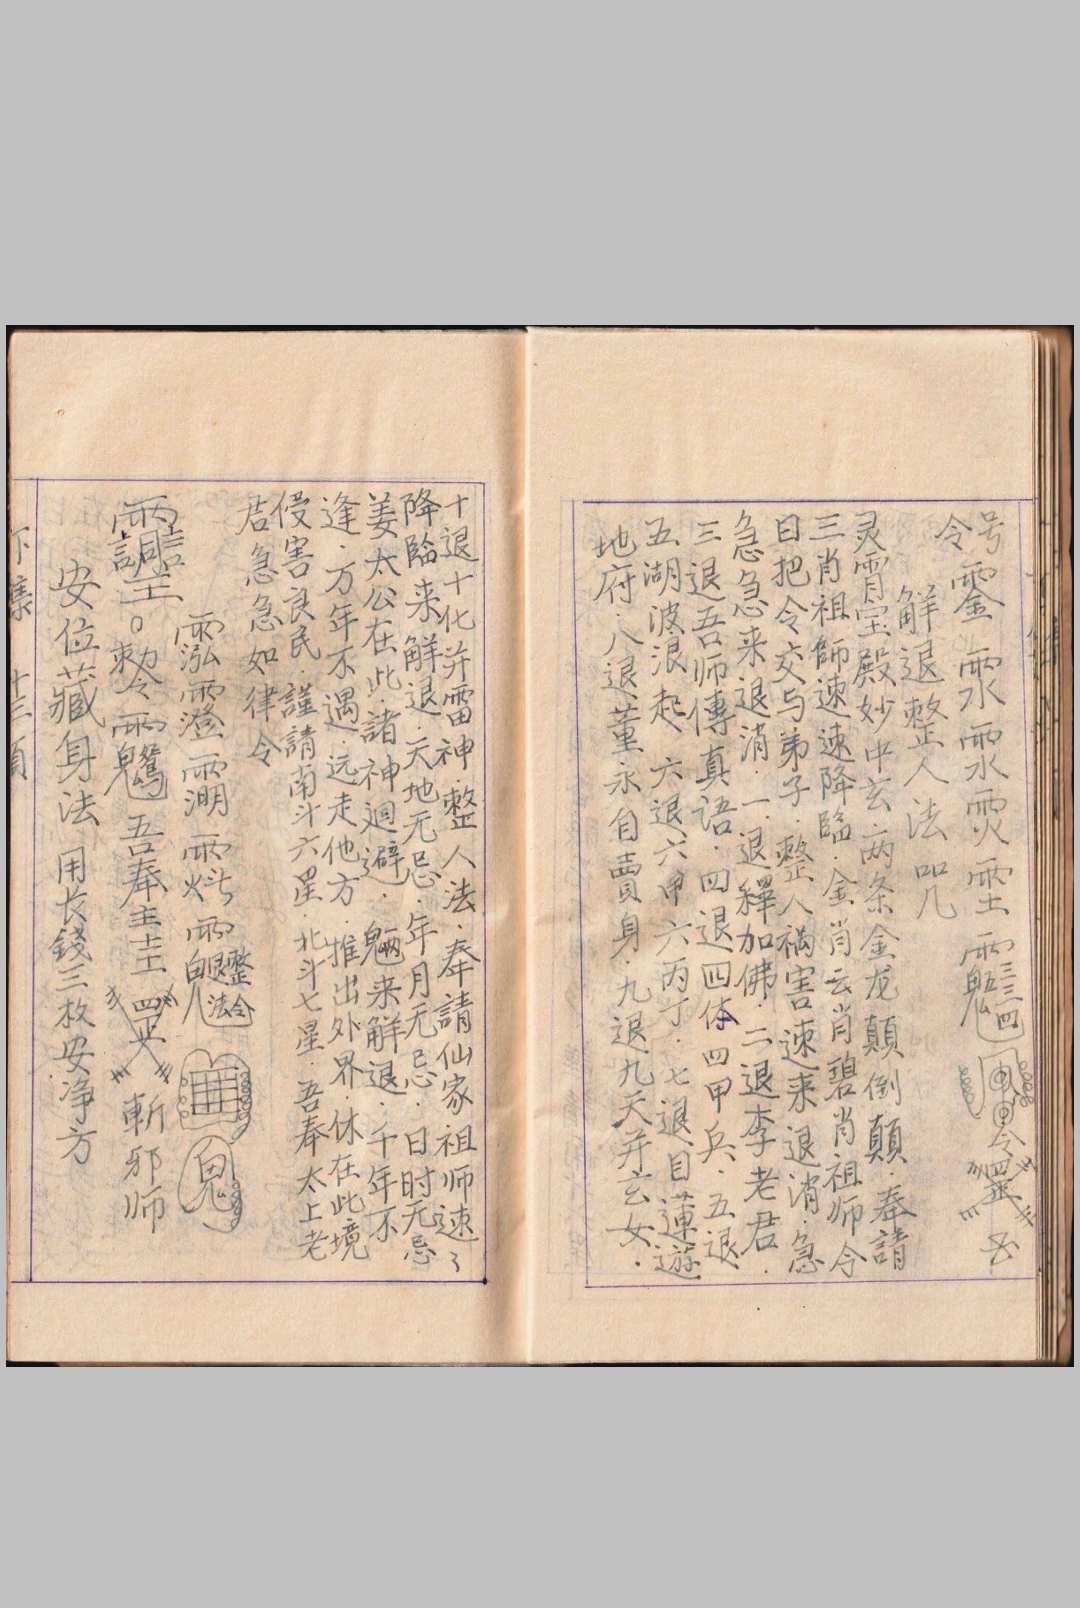 号
令
解退整人法咒
灵霄宝殿妙中玄．两条金龙颠倒颠．奉請
三肖祖師速速降臨．金肖云肖碧肖祖师令
日把令交与弟子．整人禍害速来退消．急
急急来退消．一退釋加佛．二退李老君．
三退吾师傅真语．四退四体四甲兵．五退
五湖波浪起．六退六甲六丙丁．七退目蓮遊
地府．八退董永自賣身．九退九天并玄女．
十退十化并雷神．整人法．奉請仙家祖师速々
降臨来解退．天地无忌．年月无忌．日时无忌
姜太公在此．諸神迴避．魎来解退．千年不
逢．万年不遇．远走他方．推出外界．休在此境
侵害良民．謹請南斗六星．北斗七星．吾奉太上老
君急急如律令
整令
退法
鬼
敕令 吾奉 斬邪师
安位藏身法 用长錢三枚安净方